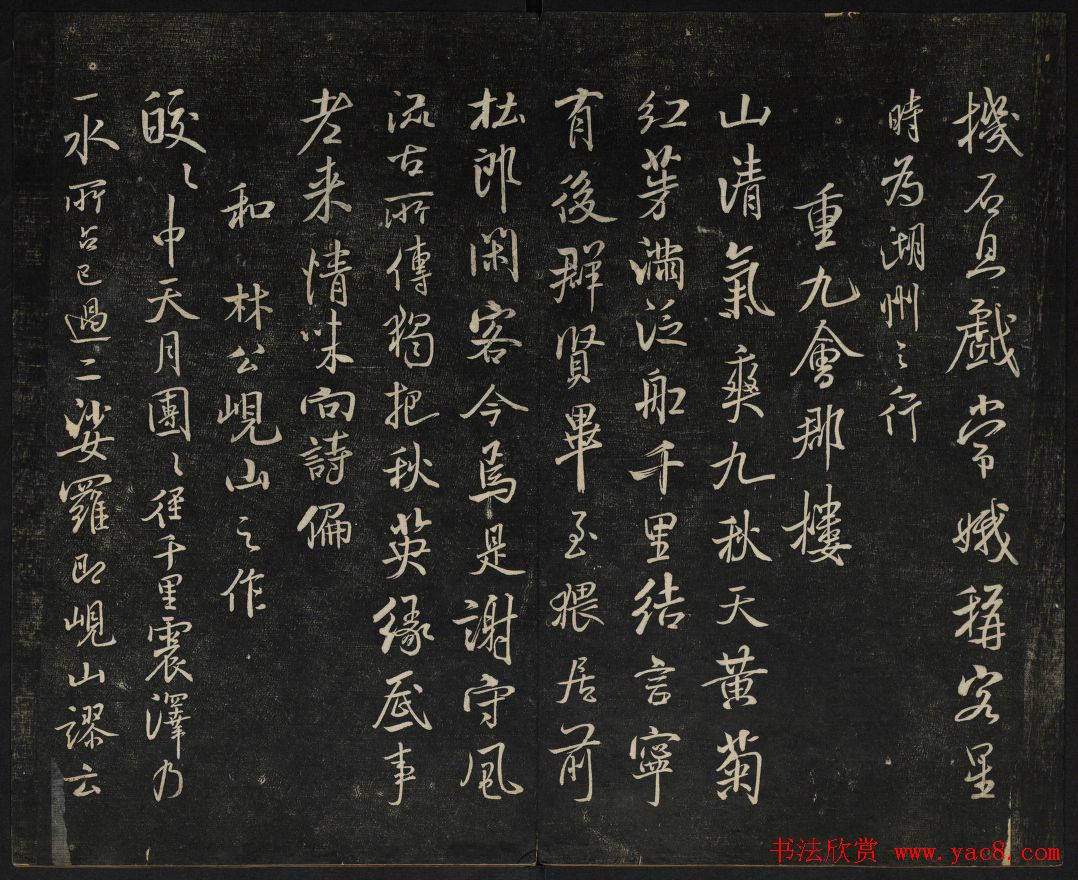 機石息戲常娥稱客星
時為湖州之行
重九會郡樓
山清氣爽九秋天黃菊
紅茱滿泛船千里結言寧
有後群賢畢至猥居前
杜郎閑客今焉是謝守風
流古所傳獨把秋英緣底事
老來情味向詩偏
和林公峴山之作
皎〻中天月團〻徑千里震澤乃
一水所占已過二娑羅即峴山謬云
书法欣赏 www.yac8.com